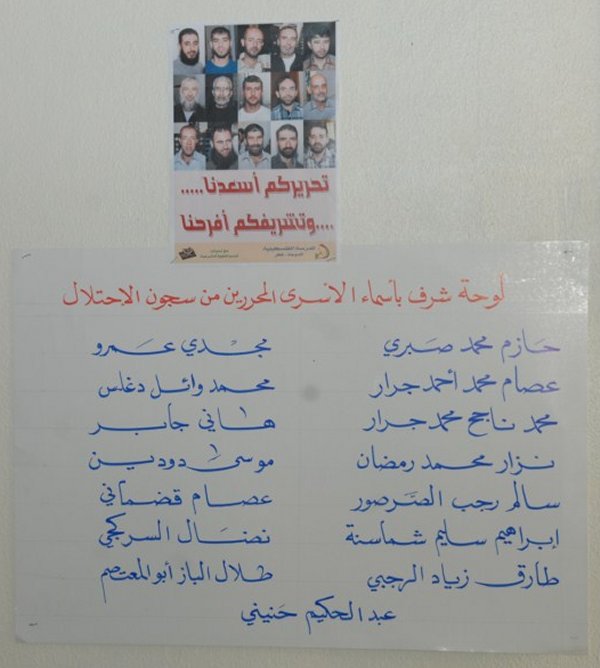 تحريركم أسعدنا.....
....وتشريفكم أفرحنا
المدرسة الفلسطينية
الدوحة - قطر
لوحة شرف بأسماء الاسرى المحررين من سجون الاحتلال
حازم محمد صبري
عصام محمد أحمد جرار
محمد ناجح محمد جرار
نزار محمد رمضان
سالم رجب الصرصور
إبراهيم سليم شماسنة
طارق زياد الرجبي
مجدي عمرو
محمد وائل دغلس
هاني جابر
موسى دودين
عصام قضماني
نضال السركجي
طلال الباز أبو المعتصم
عبد الحكيم حنيني